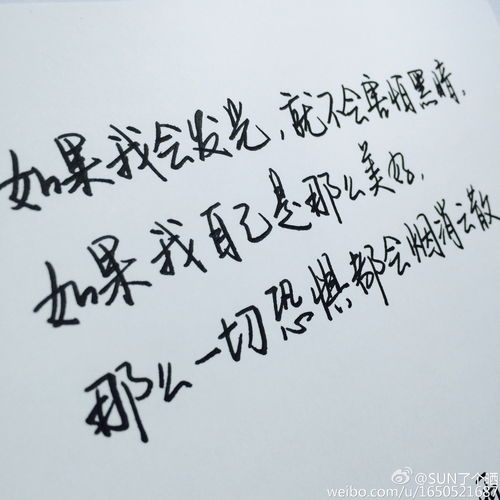 如果我会发光，就不会害怕黑暗.
如果我自己是那么美好，
那么一切恐惧都会烟消云散
@SUN了个晒
weibo.com/u/1650521687